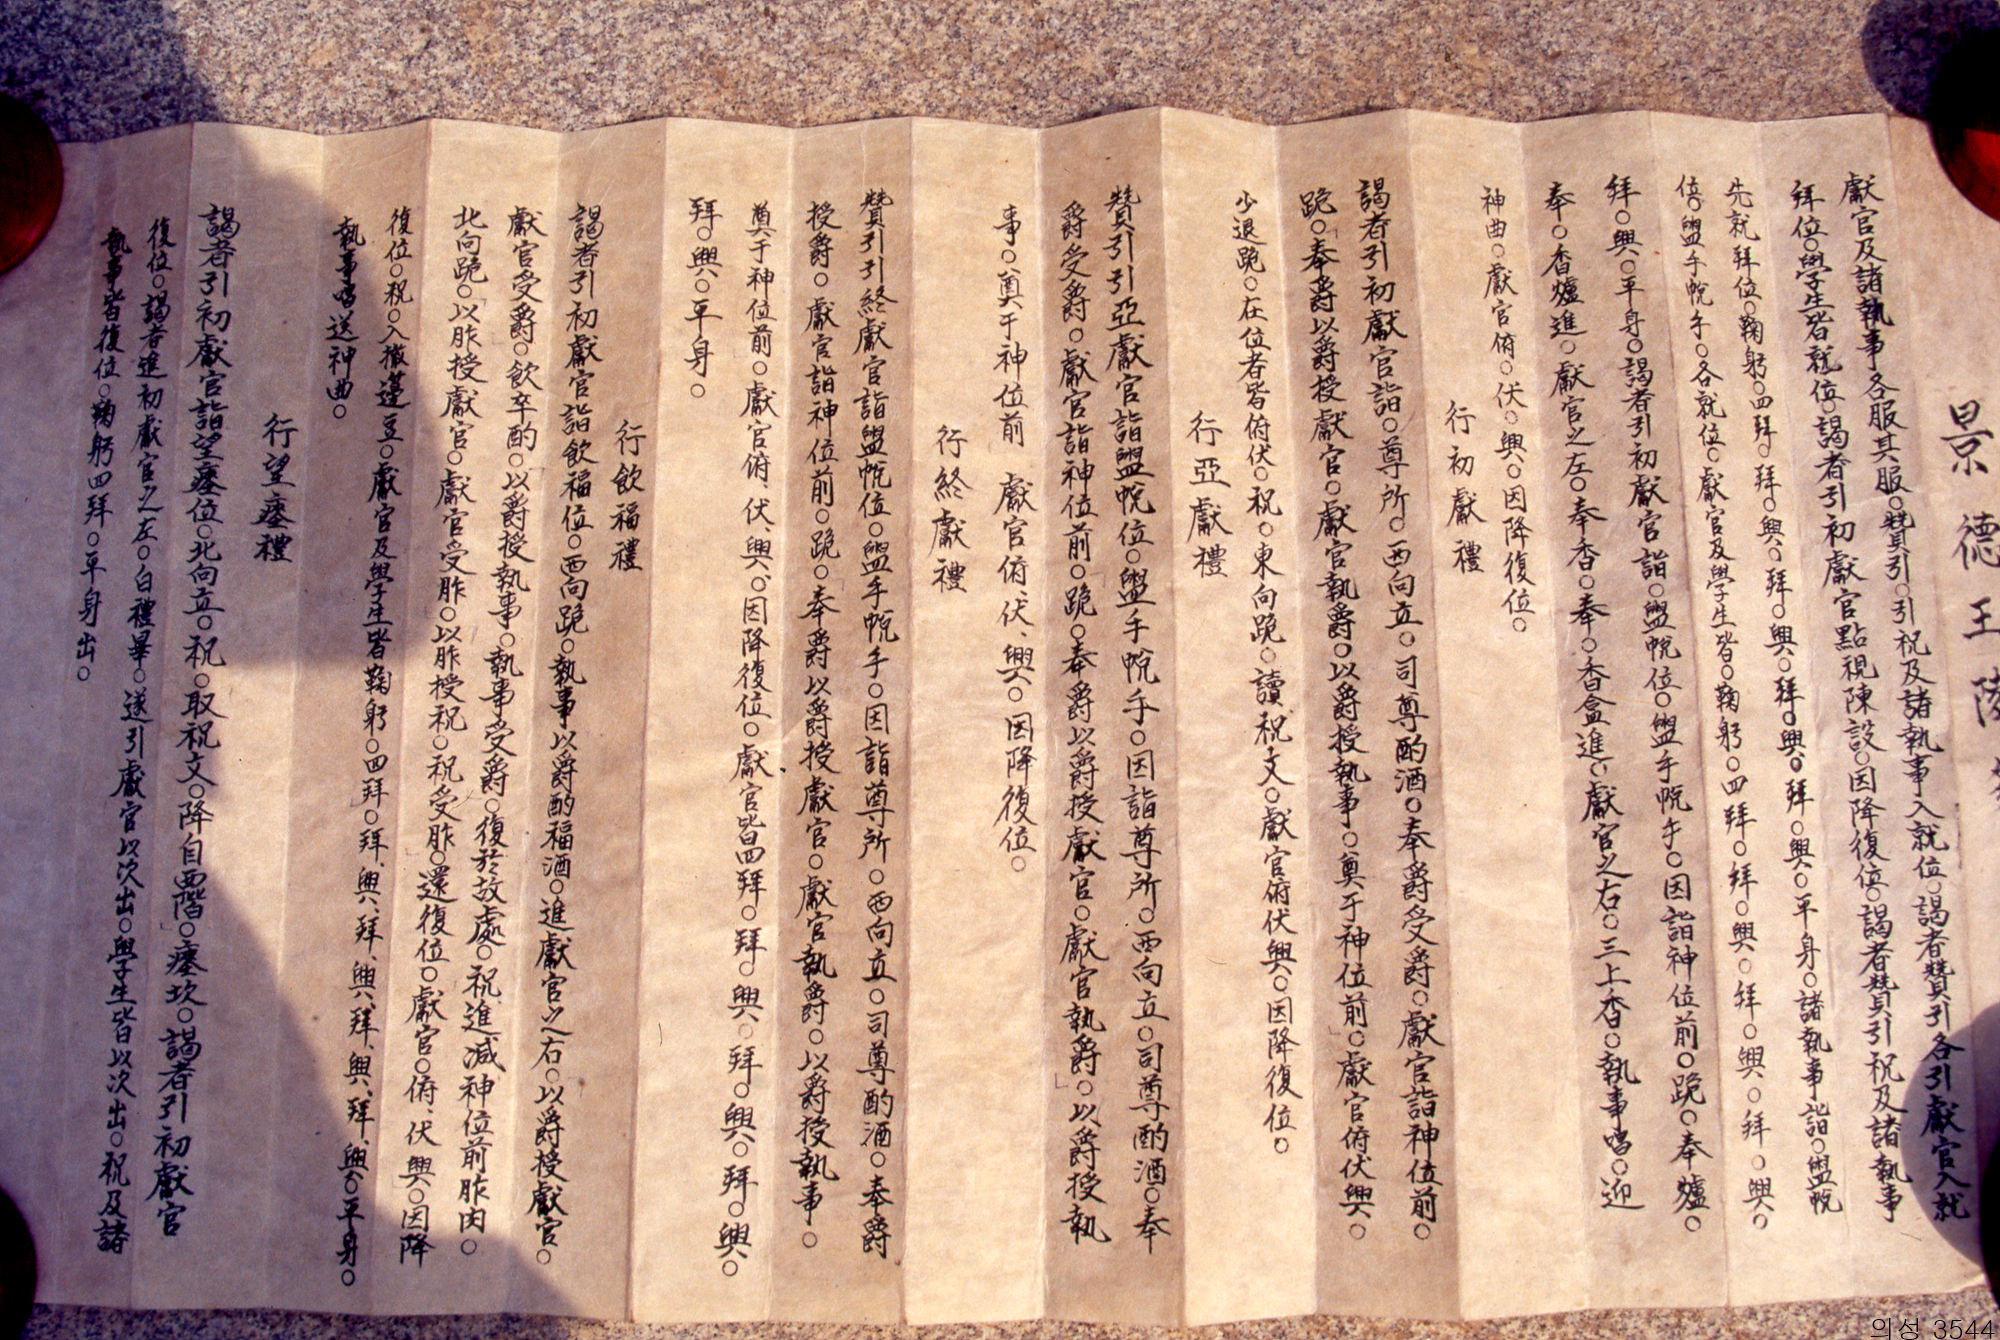 景德王陵
獻官及諸執事各服其服○贊引○引祝及諸執事入就位○謁者贊引各引獻官入就
拜位○學生皆就位○謁者引初獻官點視陳設○因降復位○謁者贊引祝及諸執事
先就拜位○鞠躬○四拜○拜○興○拜○興○拜○興○拜○興○平身○諸執事詣○盥帨
位○盥手帨手○各就位○獻官及學生皆○鞠躬○四拜○拜○興○拜○興○拜○興○
拜○興○平身○謁者引初獻官詣○盥帨位○盥手帨手○因詣神位前○跪○奉爐○
奉○香爐進○獻官之左○奉香○奉○香盒進○獻官之右○三上香○執事唱○迎
神曲○獻官俯○伏○興○因降復位○
行初獻禮
謁者引初獻官詣○尊所○西向立○司尊酌酒○奉爵受爵○獻官詣神位前○
跪○奉爵以爵授獻官○獻官執爵○以爵授執事○奠于神位前○獻官俯伏興○
少退跪○在位者皆俯伏○祝○東向跪○讀祝文○獻官俯伏興○因降復位○
行亞獻禮
贊引引亞獻官詣盥帨位○盥手帨手○因詣尊所○西向立○司尊酌酒○奉
爵受爵○獻官詣神位前○跪○奉爵以爵授獻官○獻官執爵○以爵授執
事○奠于神位前 獻官俯、伏、興○因降復位○
行終獻禮
贊引引終獻官詣盥帨位○盥手帨手○因詣尊所○西向立○司尊酌酒○奉爵
授爵○獻官詣神位前○跪○奉爵以爵授獻官○獻官執爵○以爵授執事○
奠于神位前○獻官俯、伏、興○因降復位○獻官皆四拜○拜○興○拜○興○拜○興○
拜○興○平身○
行飮福禮
謁者引初獻官詣飮福位○西向跪○執事以爵酌福酒○進獻官之右○以爵授獻官○
獻官受爵○飮卒酌○以爵授執事○執事受爵○復於故處○祝進減神位前胙肉○
北向跪○以胙授獻官○獻官受胙○以胙授祝○祝受胙○還復位○獻官○俯、伏興○因降
復位○祝○入撤籩豆○獻官及學生皆鞠躬○四拜○拜、興、拜、興、拜、興、拜、興○平身○
執事唱送神曲○
行望瘞禮
謁者引初獻官詣望瘞位○北向立○祝○取祝文○降自西階○瘞坎○謁者引初獻官
復位○謁者進初獻官之左○白禮畢○遂引獻官以次出○學生皆以次出○祝及諸
執事皆復位○鞠躬四拜○平身出○
의성 3544